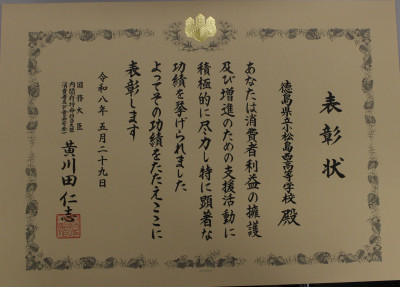 表彰状
徳島県立小松島西高等学校 殿
あなたは消費者利益の擁護
及び増進のための支援活動に
積極的に尽力し特に顕著な
功績を挙げられました
よってその功績をたたえここに
表彰します
令和八年五月二十九日
国務大臣
内閣府特命担当大臣
黄川田仁志